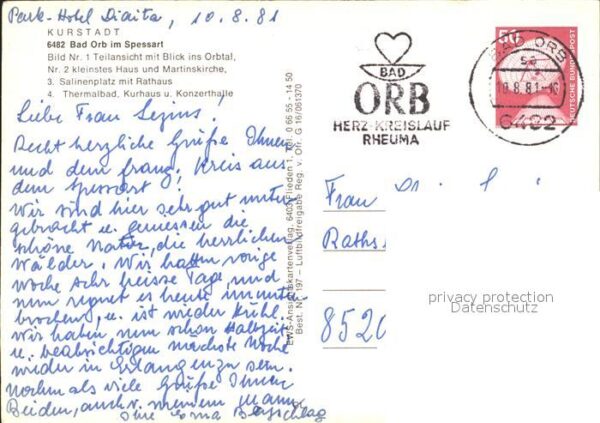 Park-Hotel Diaita, 10.8.81
KURSTADT
6482 Bad Orb im Spessart
Bild Nr. 1 Teilansicht mit Blick ins Orbtal,
Nr. 2 kleinstes Haus und Martinskirche,
3. Salinenplatz mit Rathaus
4. Thermalbad, Kurhaus u. Konzerthalle
Liebe Frau
Recht herzliche Grüße Ihnen
und dem franz. Kreis aus
dem Spessart!
Wir sind hier sehr gut unter
gebracht u. geniessen die
schöne Natur, die herrlichen
Wälder. Wir hatten vorige
Woche sehr heisse Tage, und
nun regnet es heute ununter
brochen, u. ist wieder kühl.
Wir haben nun schon Halbzeit
u. beabsichtigen nächste Woche
wieder in Erlangen zu sein.
Nochmals viele Grüße Ihnen
Beiden, auch v. meinem Mann
Ihre Erna
BWS-Ansichtskartenverlag, 6403 Flieden 1, Tel. 0 66 55 - 14 50
Best. Nr. 197 – Luftbildfreigabe Reg. v. Ofr. G 16/061370
BAD
ORB
HERZ-KREISLAUF
RHEUMA
BAD ORB
10.8.81
6482
50
DEUTSCHE BUNDESPOST
Frau
Raths
8520
privacy protection
Datenschutz